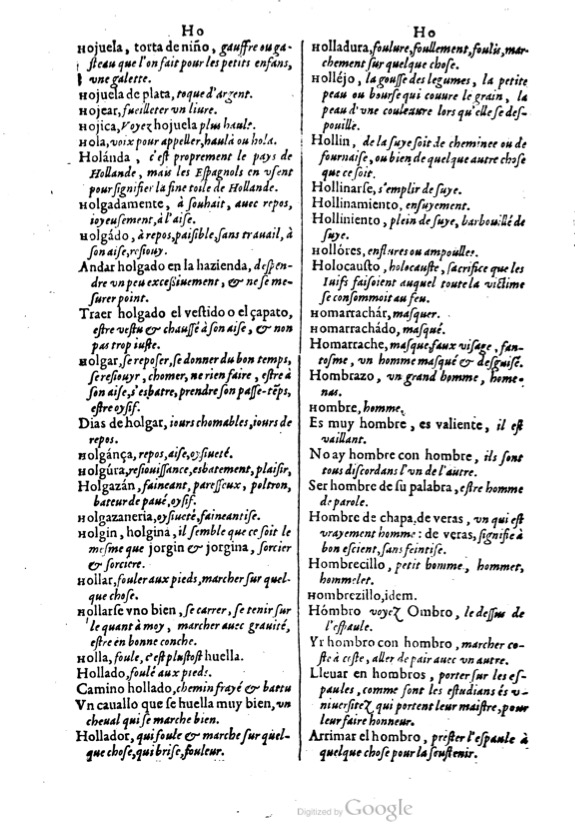 Ho
Hojuela, torta de niño, gauffre ou ga-
steau que l'on fait pour les petits enfans,
vne galette.
Hojuela de plata, toque d'argent.
Hojear, fueilleter vn liure.
Hojica, Voyez hojuela plus haule.
Hola, voix pour appeller, haula ou hola.
Holánda, c'est proprement le pays de
Hollande, mais les Espagnols en vsent
pour signifier la fine toile de Hollande.
Holgadamente, à souhait, auec repos,
ioyeusement, à l'aise.
Holgádo, à repos, paisible, sans trauail, à
son aise, resiouy.
Andar holgado en la hazienda, despen-
dre vn peu excessiuement, & ne se me-
surer point.
Traer holgado el vestido o el çapato,
estre vestu & chaussé à son aise, & non
pas trop iuste.
Holgar, se reposer, se donner du bon temps,
se resiouyr, chomer, ne rien faire, estre à
son aise, s'esbatre, prendre son passe-tẽps,
estre oysif.
Dias de holgar, iours chomables, iours de
repos.
Holgánça, repos, aise, oysiueté.
Holgúra, resiouissance, esbatement, plaisir,
Holgazán, faineant, paresseux, poltron,
bateur de paué, oysif.
Holgazaneria, oysiueté, faineantise.
Holgin, holgina, il semble que ce soit le
mesme que jorgin & jorgina, sorcier
& sorciere.
Hollar, fouler aux pieds, marcher sur quel-
que chose.
Hollarse vno bien, se carrer, se tenir sur
le quant à moy, marcher auec grauité,
estre en bonne conche.
Holla, foule, c'est plustost huella.
Hollado, foulé aux pieds.
Camino hollado, chemin frayé & battu
Vn cauallo que se huella muy bien, vn
cheual qui se marche bien.
Hollador, qui foule & marche sur quel-
que chose, qui brise, fouleur.
Ho
Holladura, foulure, foullement, foulis, mar-
chement sur quelque chose.
Holléjo, la gousse des legumes, la petite
peau ou bourse qui couure le grain, la
peau d'vne couleuure lors qu'elle se des-
pouille.
Hollin, de la suye soit de cheminee ou de
fournaise, ou bien de quelque autre chose
que ce soit.
Hollinarse, s'emplir de suye.
Hollinamiento, ensuyement.
Holliniento, plein de suye, barbouillé de
suye.
Hollòres, enflures ou ampoulles.
Holocausto, holocauste, sacrifice que les
Iuifs faisoient auquel toute la victime
se consommoit au feu.
Homarrachár, masquer.
Homarrachádo, masqué.
Homarrache, masque, faux visage, fan-
tosme, vn homme masqué & desguisé.
Hombrazo, vn grand homme, home-
nas.
Hombre, homme.
Es muy hombre, es valiente, il est
vaillant.
No ay hombre con hombre, ils sont
tous discordans l'vn de l'autre.
Ser hombre de su palabra, estre homme
de parole.
Hombre de chapa, de veras, vn qui est
vrayement homme: de veras, signifie à
bon escient, sans feintise.
Hombrecillo, petit homme, hommet,
hommelet.
Hombrezillo, idem.
Hómbro voyez Ombro, le dessus de
l'espaule.
Yr hombro con hombro, marcher co-
ste à coste, aller de pair auec vn autre.
Lleuar en hombros, porter sur les es-
paules, comme font les estudians és v-
niuersitez qui portent leur maistre, pour
leur faire honneur.
Arrimar el hombro, prester l'espaule à
quelque chose pour la soustenir.
Digitized by Google